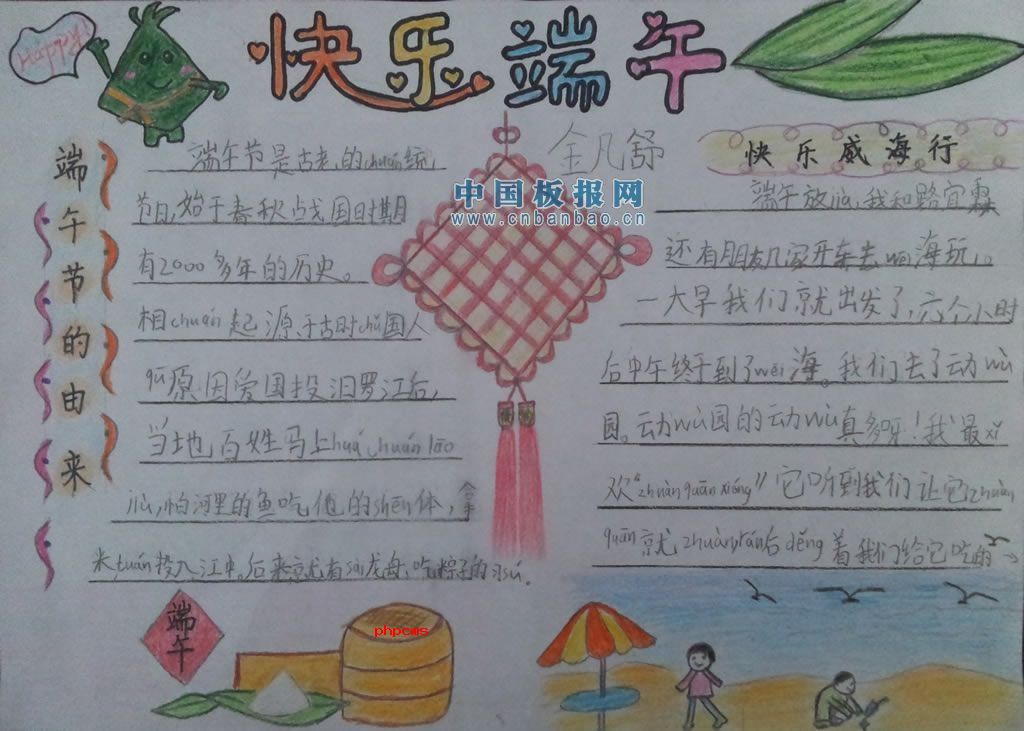 Happy!
快乐端午
金凡舒
中国板报网
www.cnbanbao.cn
端午节的由来
端午节是古老的chuán统
节日,始于春秋战国时期
有2000多年的历史。
相chuán起源于古时chǔ国人
qū原因爱国投汨罗江后,
当地百姓马上huá chuán lāo
jiù,怕河里的鱼吃他的shēn体,拿
米tuán投入江中。后来就有sài龙舟、吃粽子的习sú.
快乐威海行
端午放jià,我和路宜霖
还有朋友几家开车去wēi海玩,。
一大早我们就出发了,六个小时
后中午终于到了wēi海。我们去了动wù
园。动wù园的动wù真多呀!我最xǐ
欢“zhuàn quān xióng”它听到我们让它zhuàn
quān就zhuàn,rán后děng着我们给它吃的
端午
phpcms